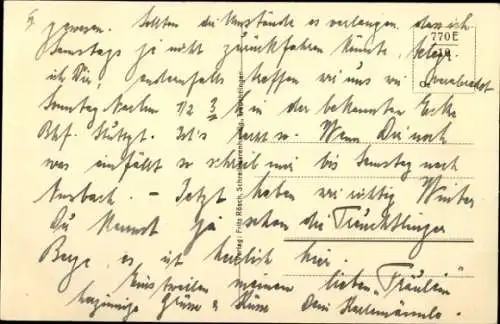 gewesen. Sollten die Umstände es verlangen, dass ich
Samstags ja nicht zurückfahren könnte,
ich Dir, andernfalls treffen wir uns wie
Sonntag Nachm 1/2 3 h in der bekannten Ecke
Bhf. Stuttgt. Ist's recht so. Wenn Dir noch
was einfällt so schreib mir bis Samstag nach
Ansbach. – Jetzt haben wir richtig Winter
Du kennst ja schon die Treuchtlinger
Berge, es ist herrlich hier.
Einstweilen meinem lieben „Fräulein"
herzinnige Grüsse & Küsse Dein
770 E
Verlag: Fritz Rösch, Schreibwarenhandlg., Treuchtlingen